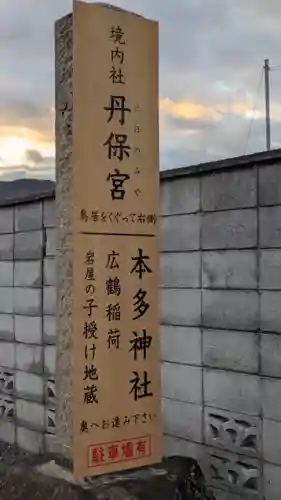 境内社
丹保宮
にほのみや
鳥居をくぐって右側
本多神社
広鶴稲荷
岩屋の子授け地蔵
奥へお進み下さい
駐車場有